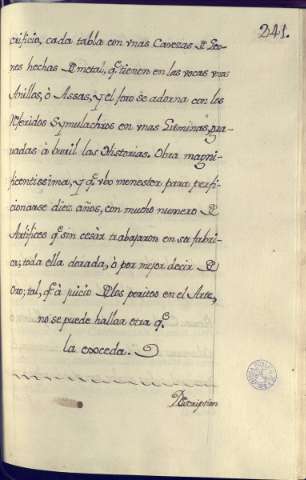 241.
crificio, cada tabla con vnas Cavezas D Leo-
nes hechas D metal, q.e tienen en las vocas vnos
Anillos, ò Assas, y el foro se adorna con los
Referidos Symulachros en vnas Laminas, gra-
vadas à buril las Historias. Obra magni-
ficentissima, y q.e vbo menester para perfi-
cionarse diez años, con mucho numero D
Artifices q.e sin cesàr trabajaron en su fabri-
ca; toda ella dorada, ò por mejor decir D
Oro; tal, q.e à juicio D los peritos en el Arte,
no se puede hallar otra q.e
la exceda.
Descripcion